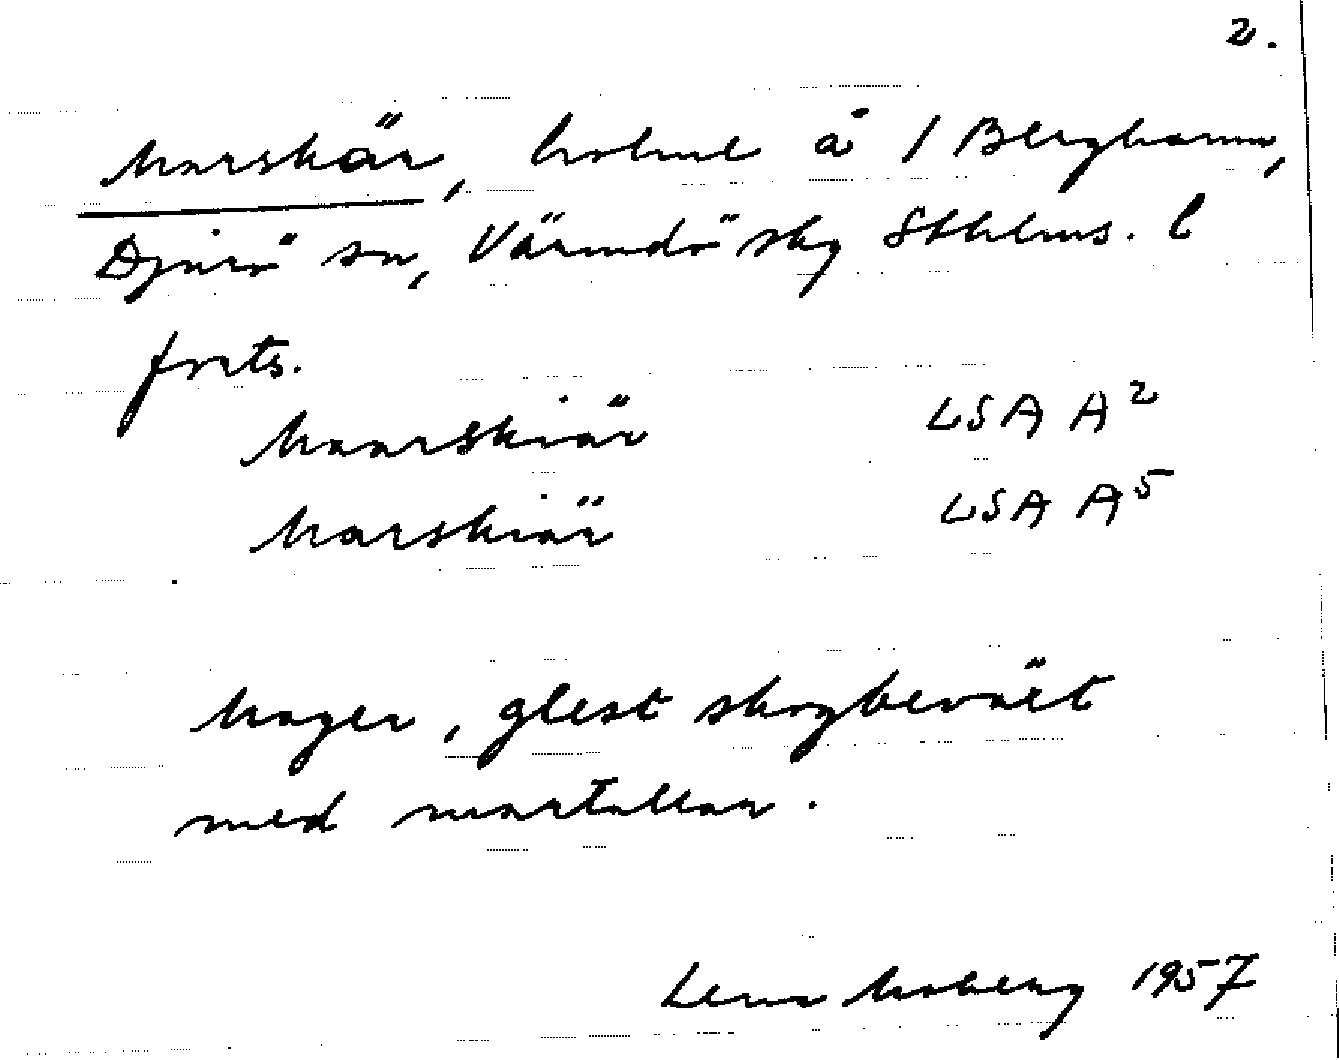 2.
Marskär, holme å 1 Berghamn,
Djurö sn, Värmdö skg Sthlms. l
forts.
Maarskiär LSA A²
Marskiär LSA A⁵
Mager, glest skogbevält
med martallar.
Lena Moberg 1957